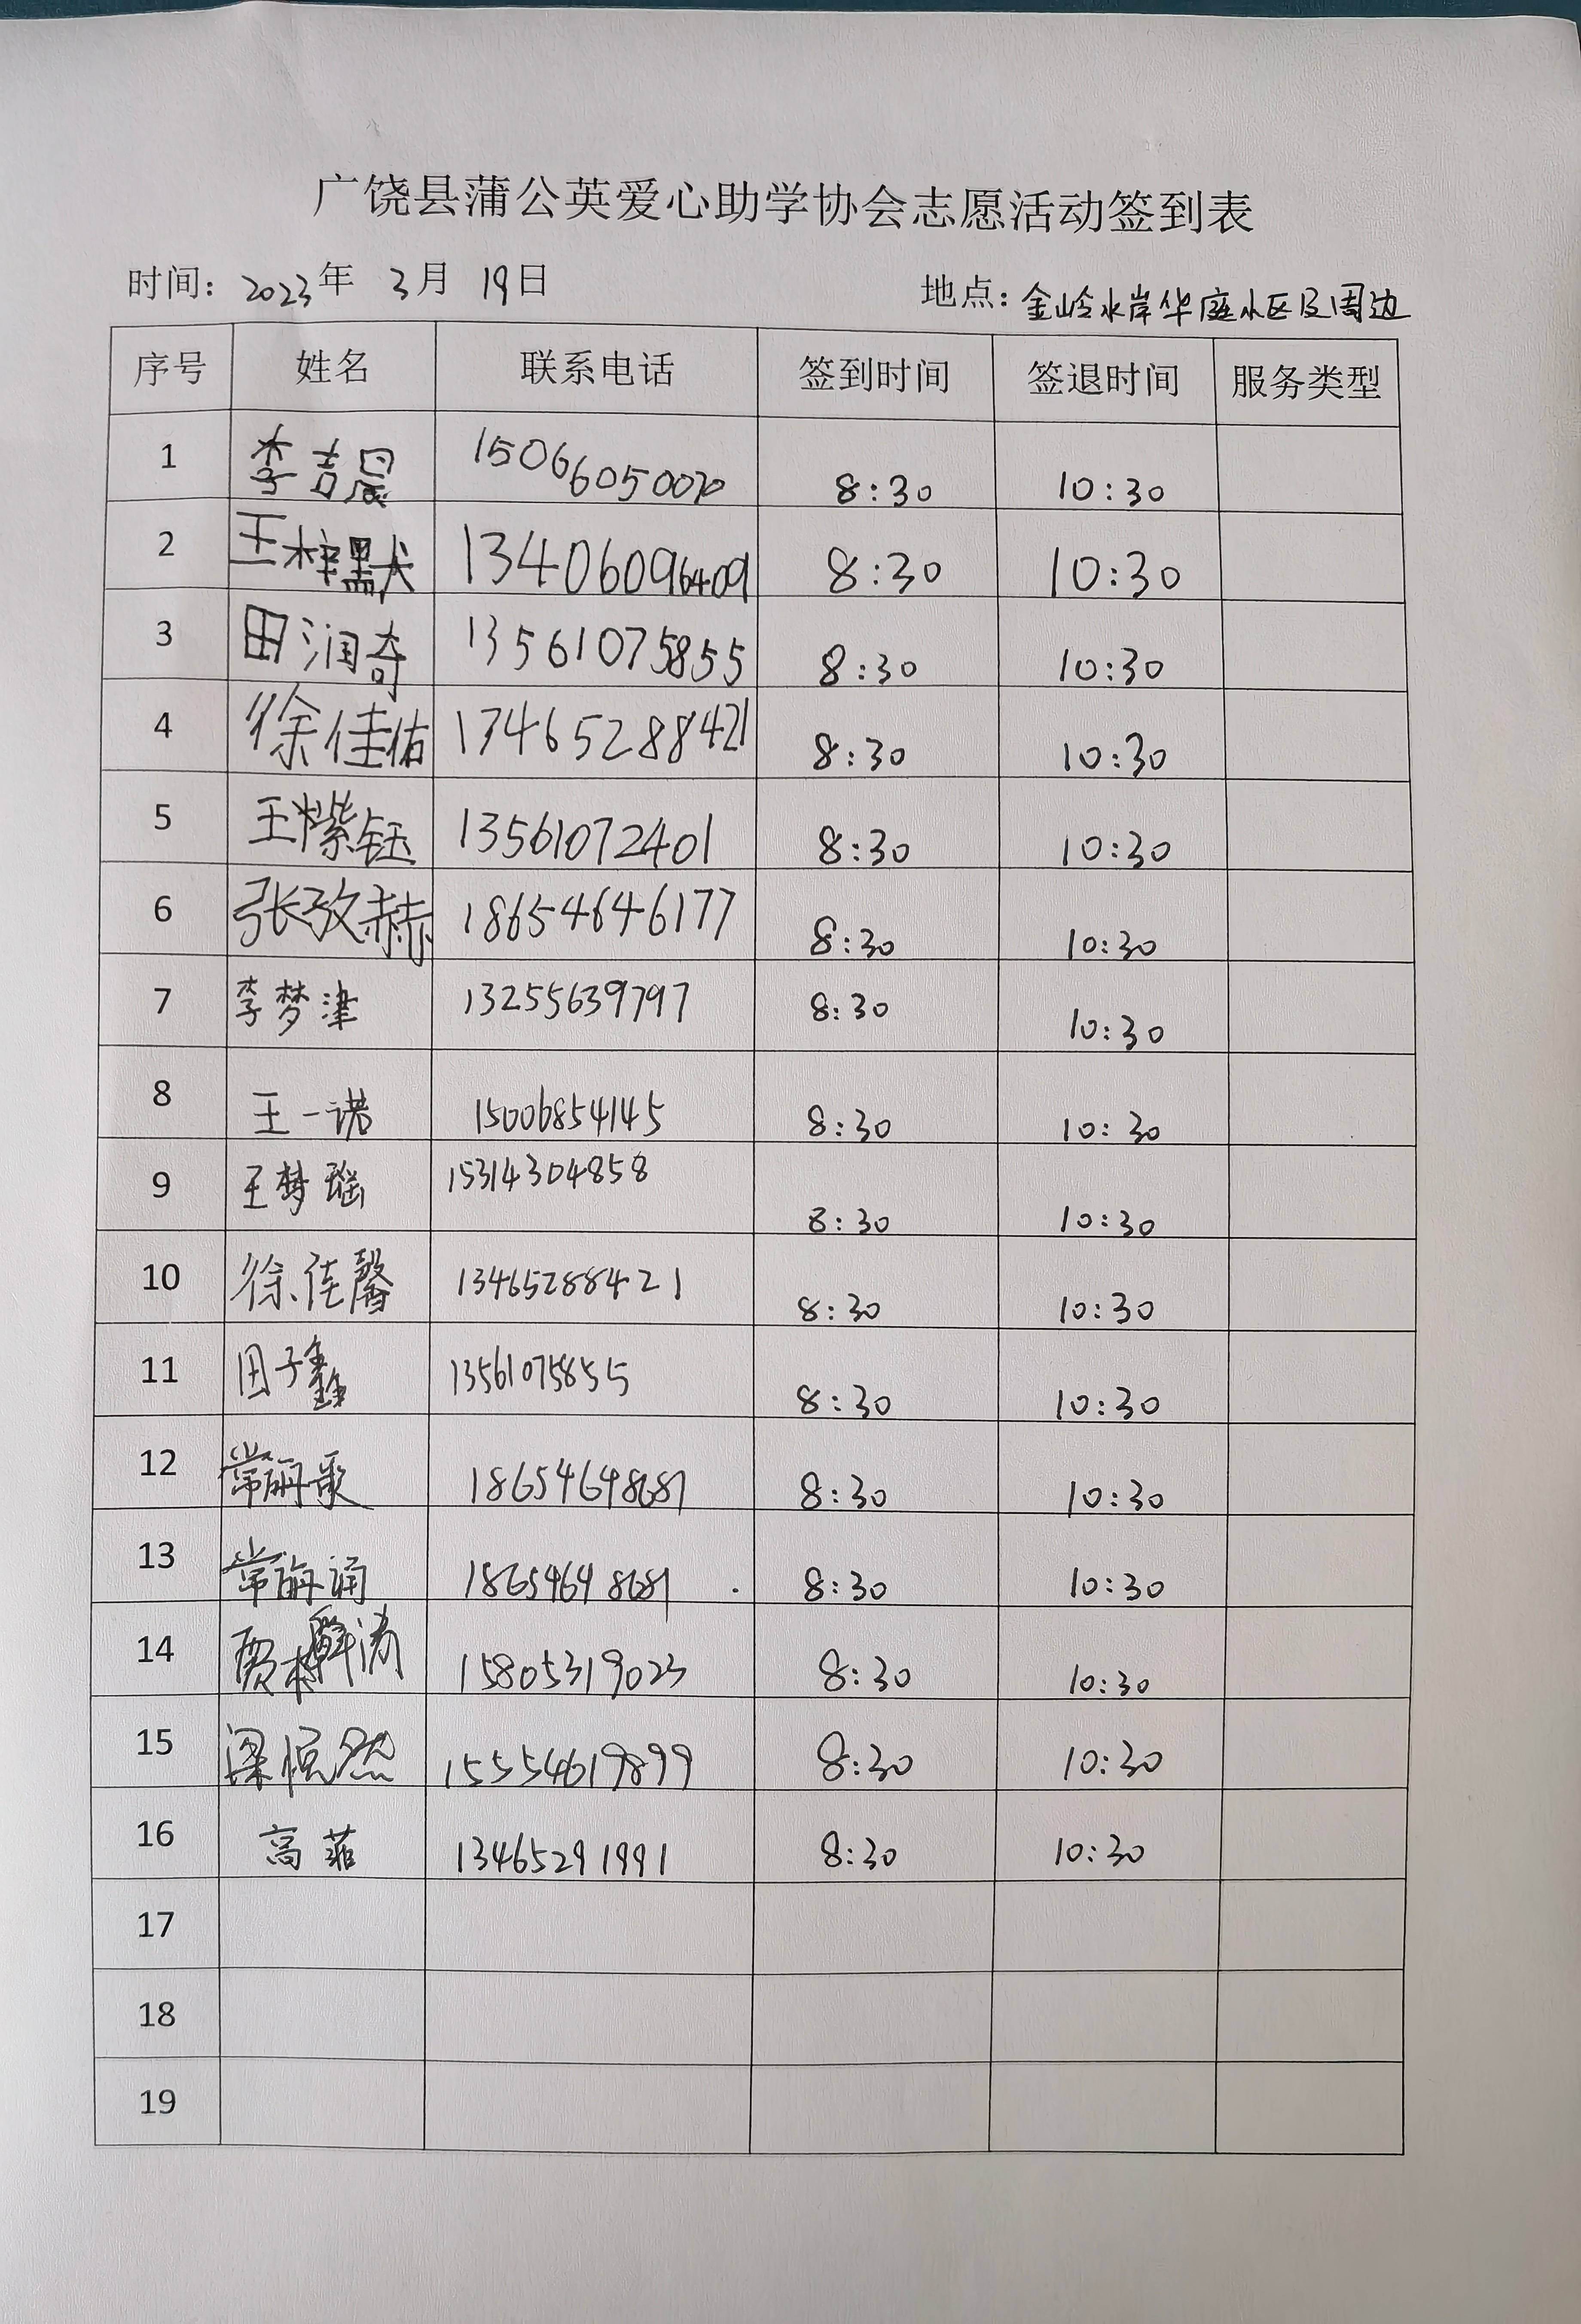 广饶县蒲公英爱心助学协会志愿活动签到表
时间：2023年 3月 19日 地点：金岭水岸华庭小区及周边
序号 姓名 联系电话 签到时间 签退时间 服务类型
1 李吉晟 8:30 10:30
2 王梓默 13406096409 8:30 10:30
3 田润奇 13561075855 8:30 10:30
4 徐佳佑 8:30 10:30
5 王紫钰 13561072401 8:30 10:30
6 张孜赫 18654646177 8:30 10:30
7 李梦津 13255639797 8:30 10:30
8 王一诺 15006854145 8:30 10:30
9 王梦瑶 15314304858 8:30 10:30
10 徐佳馨 13465288421 8:30 10:30
11 田子鑫 13561075855 8:30 10:30
12 常 歌 18654648681 8:30 10:30
13 常 诵 18654648681 8:30 10:30
14 贾 涛 15805319023 8:30 10:30
15 梁恒然 15554619899 8:30 10:30
16 高菲 13465291991 8:30 10:30
17
18
19